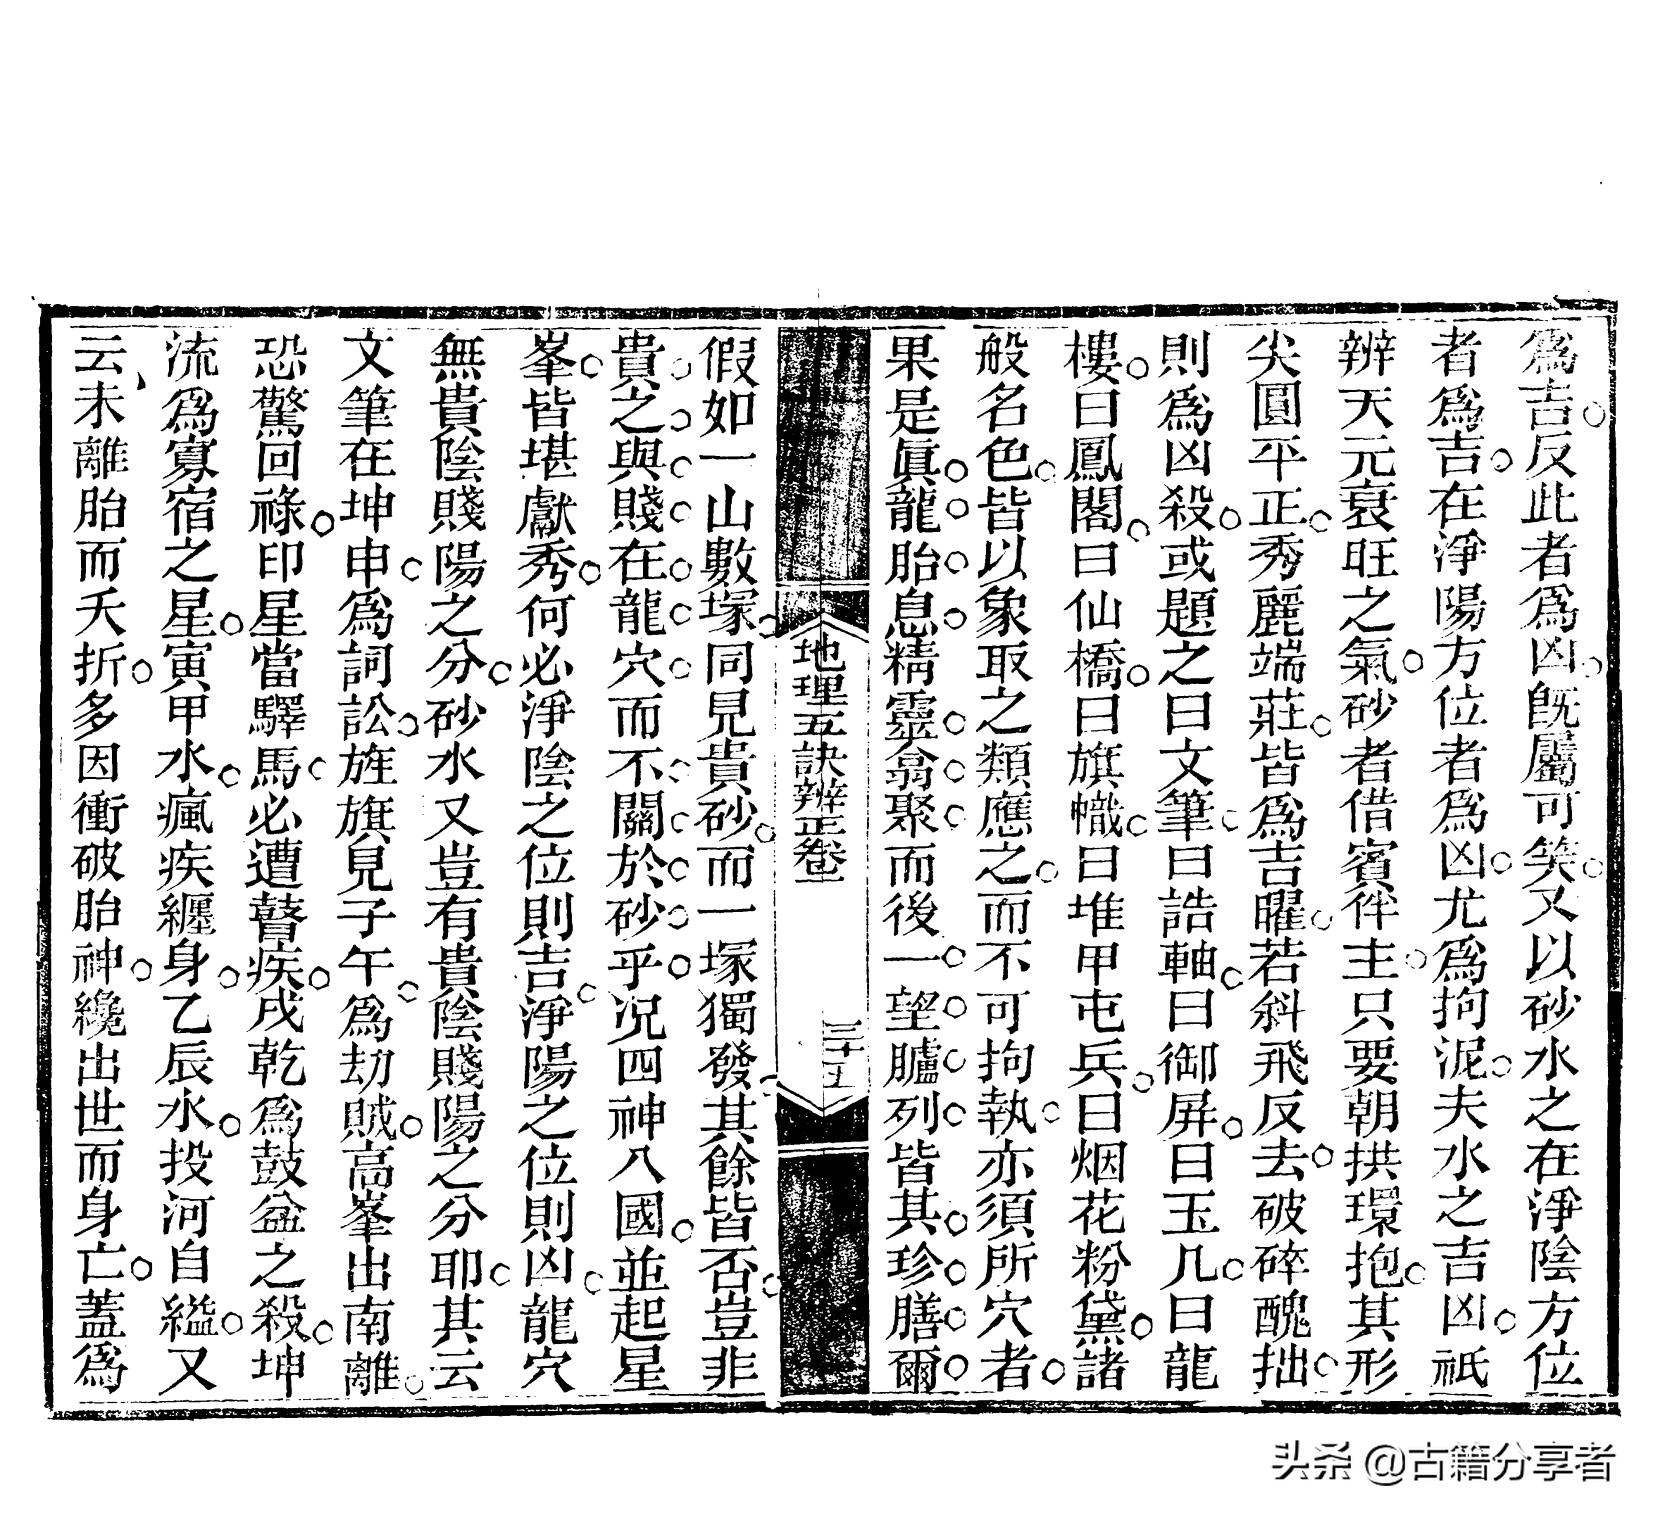 爲吉反此者爲凶旣屬可笑又以砂水之在淨陰方位
者爲吉在淨陽方位者爲凶尤爲拘泥夫水之吉凶祇
辨天元衰旺之氣砂者借賓伴主只要朝拱環抱其形
尖圓平正秀麗端莊皆爲吉曜若斜飛反去破碎醜拙
則爲凶殺或題之曰文筆曰誥軸曰御屏曰玉几曰龍
樓曰鳳閣曰仙橋曰旗幟曰堆甲屯兵曰烟花粉黛諸
般名色皆以象取之類應之而不可拘執亦須所穴者
果是眞龍胎息精靈翕聚而後一望臚列皆其珍膳爾
地理五訣辨正卷二
三十五
假如一山數塚同見貴砂而一塚獨發其餘皆否豈非
貴之與賤在龍穴而不關於砂乎况四神八國並起星
峯皆堪獻秀何必淨陰之位則吉淨陽之位則凶龍穴
無貴陰賤陽之分砂水又豈有貴陰賤陽之分耶其云
文筆在坤申爲詞訟旌旗見子午爲劫賊高峯出南離
恐驚回祿印星當驛馬必遭瞽疾戌乾爲鼓盆之殺坤
流爲寡宿之星寅甲水瘋疾纏身乙辰水投河自縊又
云未離胎而夭折多因衝破胎神纔出世而身亡蓋爲
头条 @古籍分享者